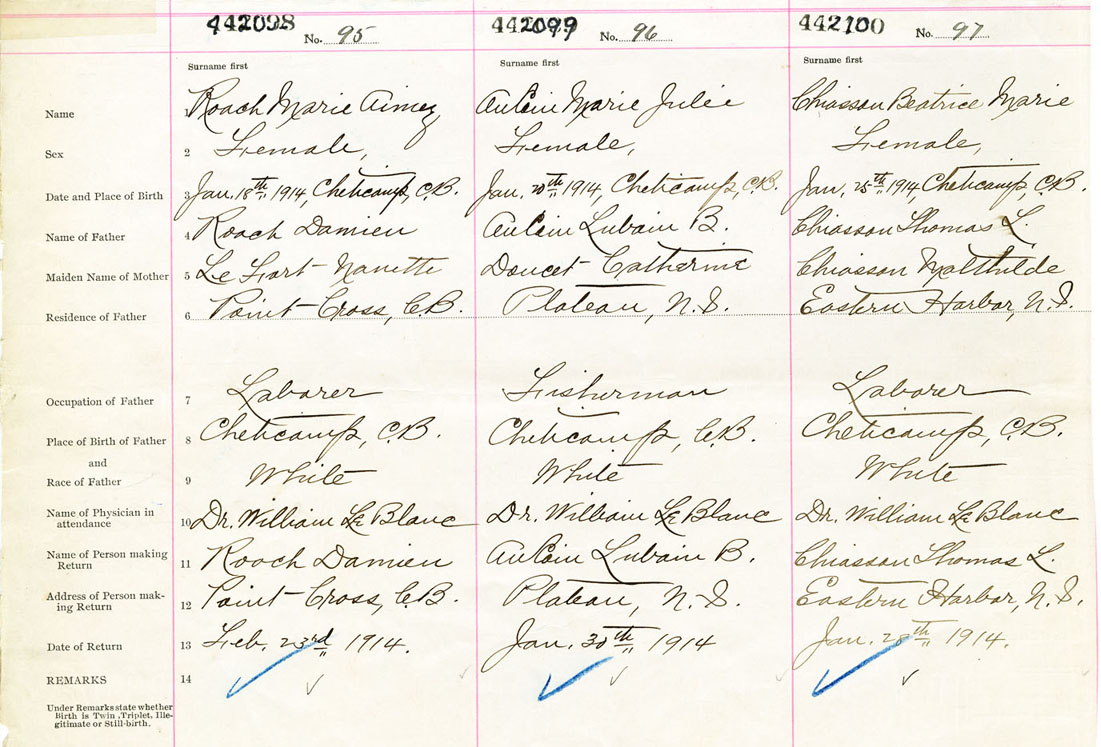 442098 No. 95 442099 No. 96 442100 No. 97
Surname first Surname first Surname first
Name 1 Roach Marie Aimey AuCoin Marie Julie Chiasson Beatrice Marie
Sex 2 Female, Female, Female,
Date and Place of Birth 3 Jan. 18th 1914, Cheticamp, C.B. Jan. 20th 1914, Cheticamp, C.B. Jan. 25th 1914, Cheticamp, C.B.
Name of Father 4 Roach Damien AuCoin Lubain B. Chiasson Thomas L.
Maiden Name of Mother 5 Le Fort Nanette Doucet Catherine Chiasson Malthilde
Residence of Father 6 Point Cross, C.B. Plateau, N.S. Eastern Harbor, N.S.
Occupation of Father 7 Laborer Fisherman Laborer
Place of Birth of Father 8 Cheticamp, C.B. Cheticamp, C.B. Cheticamp, C.B.
and
Race of Father 9 White White White
Name of Physician in
attendance 10 Dr. William Le Blanc Dr. William Le Blanc Dr. William Le Blanc
Name of Person making
Return 11 Roach Damien AuCoin Lubain B. Chiasson Thomas L.
Address of Person mak-
ing Return 12 Point Cross, C.B. Plateau, N.S. Eastern Harbor, N.S.
Date of Return 13 Feb. 23rd 1914. Jan. 30th 1914 Jan. 28th 1914.
REMARKS 14
Under Remarks state whether
Birth is Twin, Triplet, Ille-
gitimate or Still-birth.